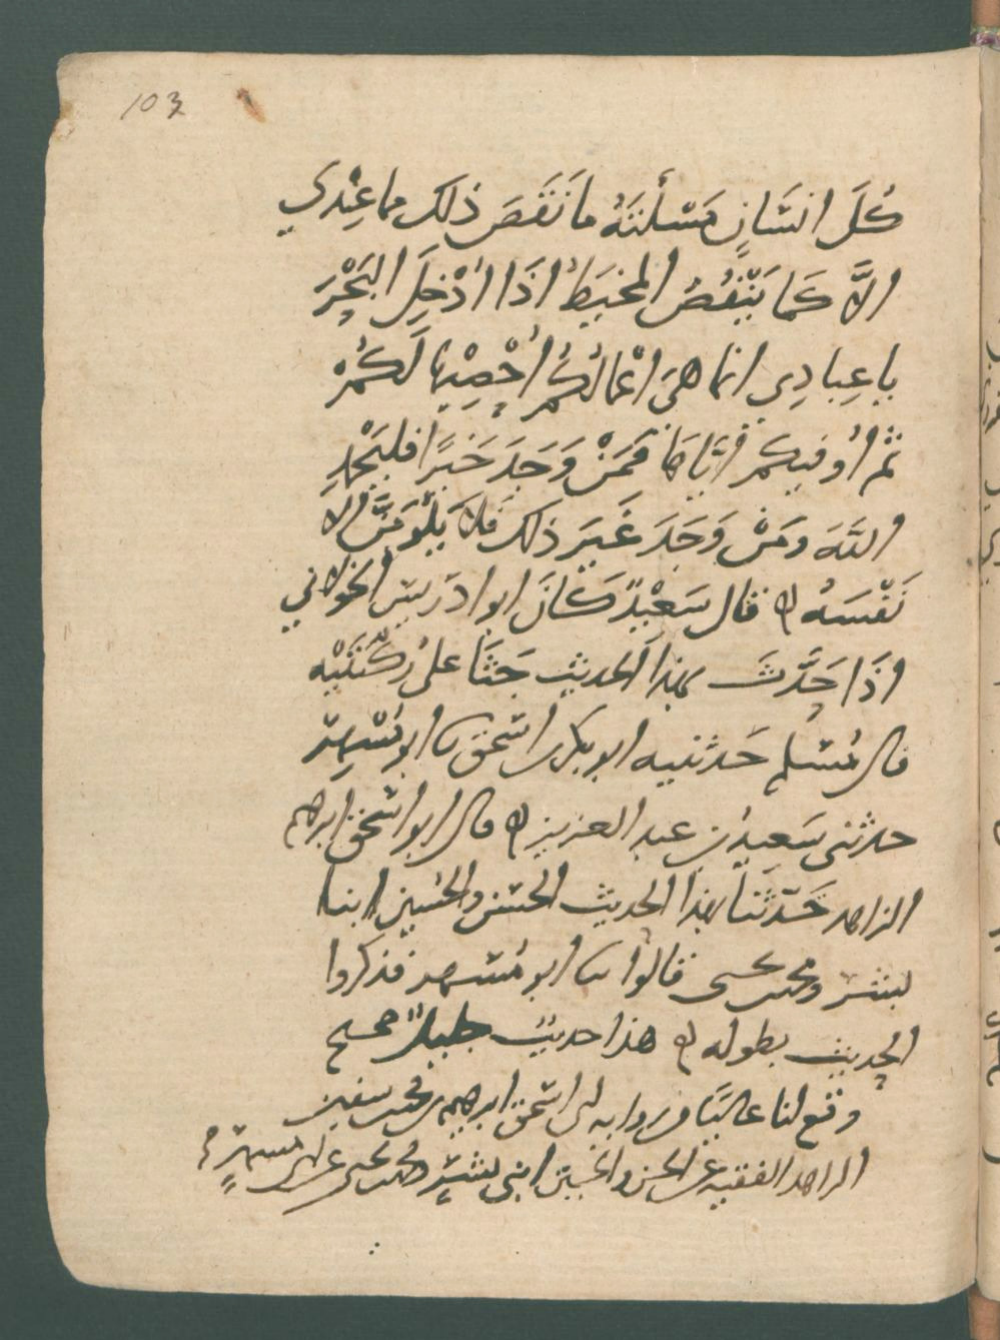 103
كُلَ انسَانٍ مَسْأَلَتَهُ ما نَقَصَ ذلك مما عِنْدي
الاَّ كَما يَنْقُصُ المِخيَطُ اذَا اُدْخِلَ البَحْرَ
يا عِبادِي انما هىَ اعْمالُكُم اُحْصِيْها لَكُمْ
ثم اُوفيكم اِيَّاهَا فمَنْ وَجَدَ خَيرًا فليَحْمدِ
اللّهَ ومَنْ وَجَدَ غَيرَ ذلك فلا يَلُوْمَنَّ الا
نَفْسَهُ ه قال سَعْيدٌ كَانَ ابو ادرَيس الخولاني
اذَا حَدَّثَ بهذا الحديث جَثَا على رُكْبَتَيْه
قال مُسْلم حَدثنيه ابو بكر بن اسحق نا ابو مُسْهِر
حدثنى سَعيد بن عبد العزيز ه قال ابو اسحق ابرهيم
الزاهد حَدّثَنا بهذا الحديث الحسَن والحُسَين ابنا
بشر ومحمد بن يحيى قالوا نا ابو مُسْهر فذكروا
الحديث بطوله ه هذا حديثٌ جليلٌ صحيح
وقع لنا عاليًا من روايه ابى اسحق ابرهيم بن محمد بن سفين
الزاهد الفقيه عن الحسن والحسين ابنى بشرٍ ومحمد بن يحيى عن ابى مُسهرٍ